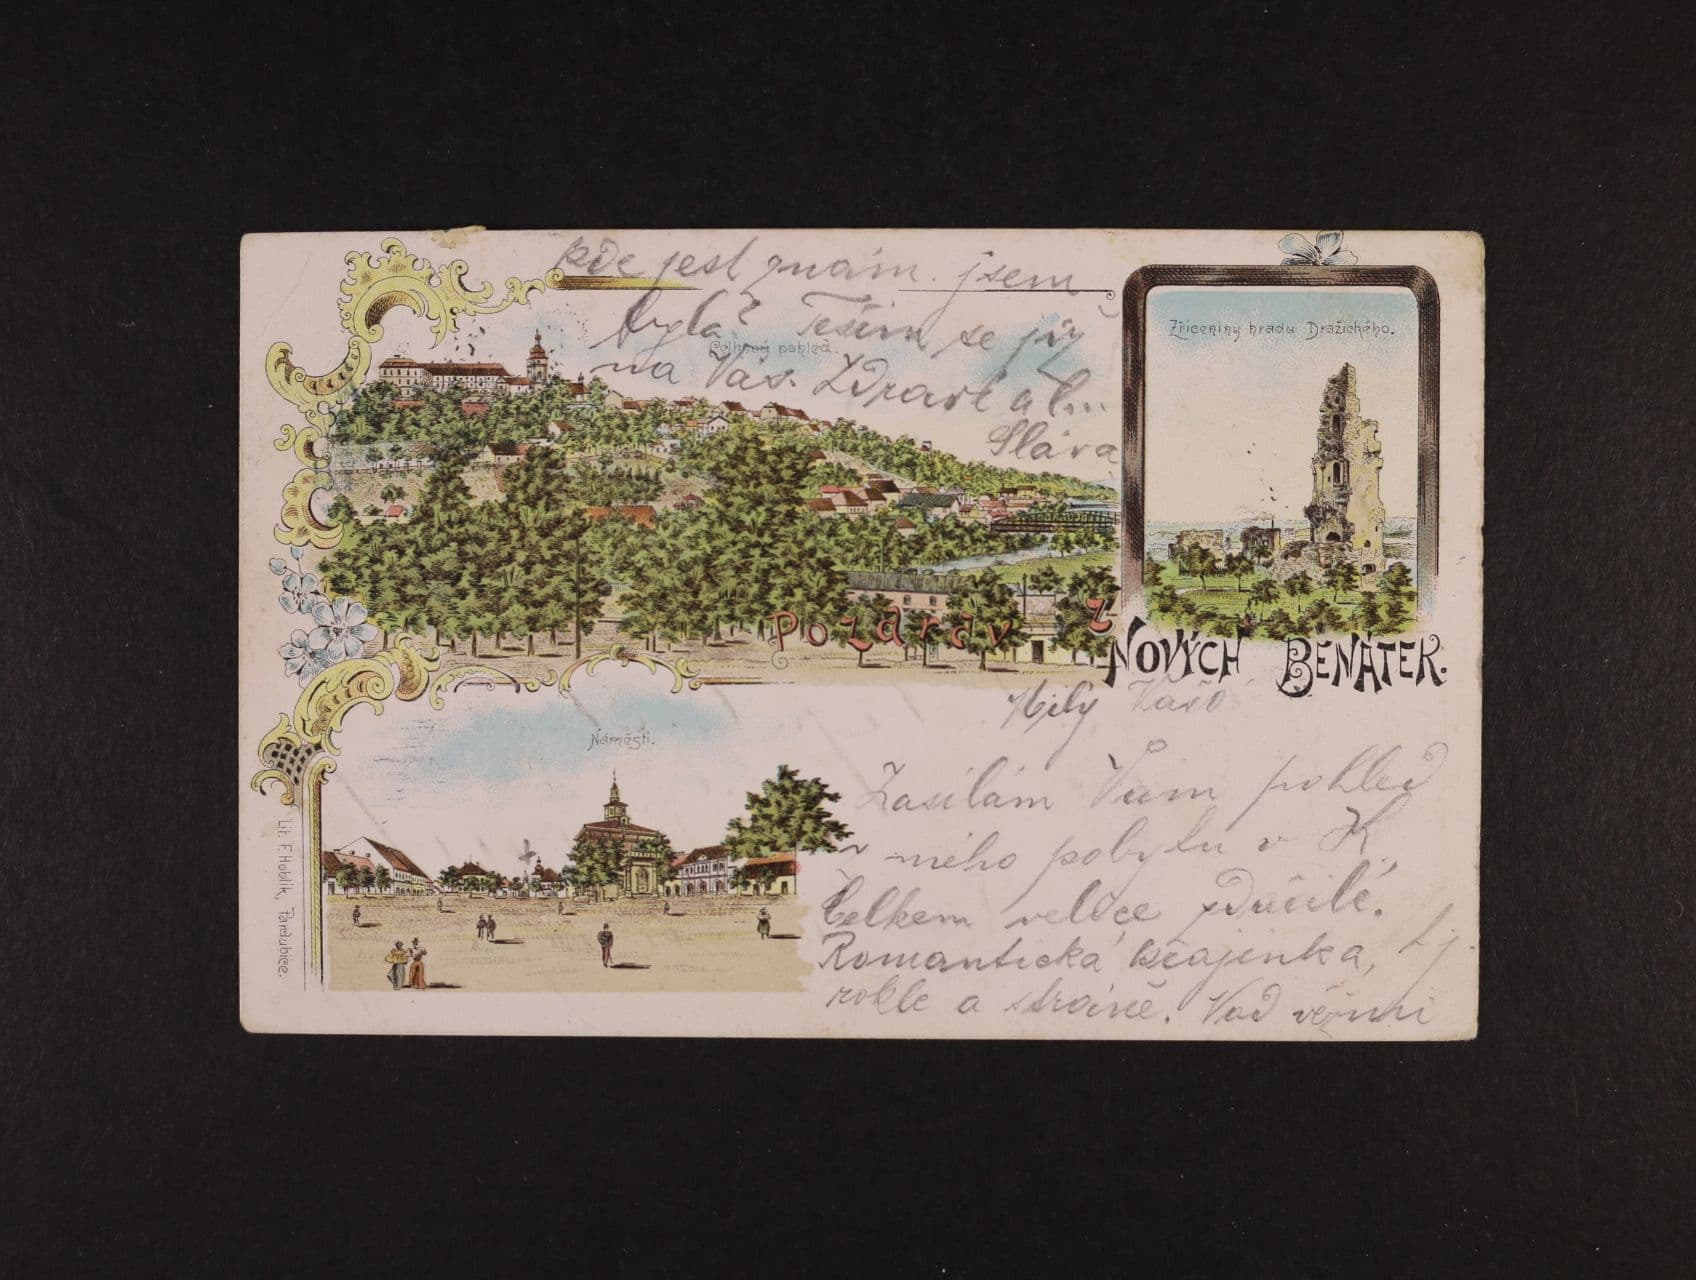 kde jest znám. jsem
byla? Těším se již
Celkový pohled.
na Vás. Zdravt a l...
Sláva
Zříceniny hradu Dražického.
Pozdrav z
NOVÝCH BENÁTEK.
Milý Vašo
Náměstí.
Zasílám Vám pohled
z mého pobytu v K
Celkem velice zdařilé.
Romantická krajinka, tj.
rokle a stráně. Vod věčnui
Lit. F. Hoblík, Pardubice.